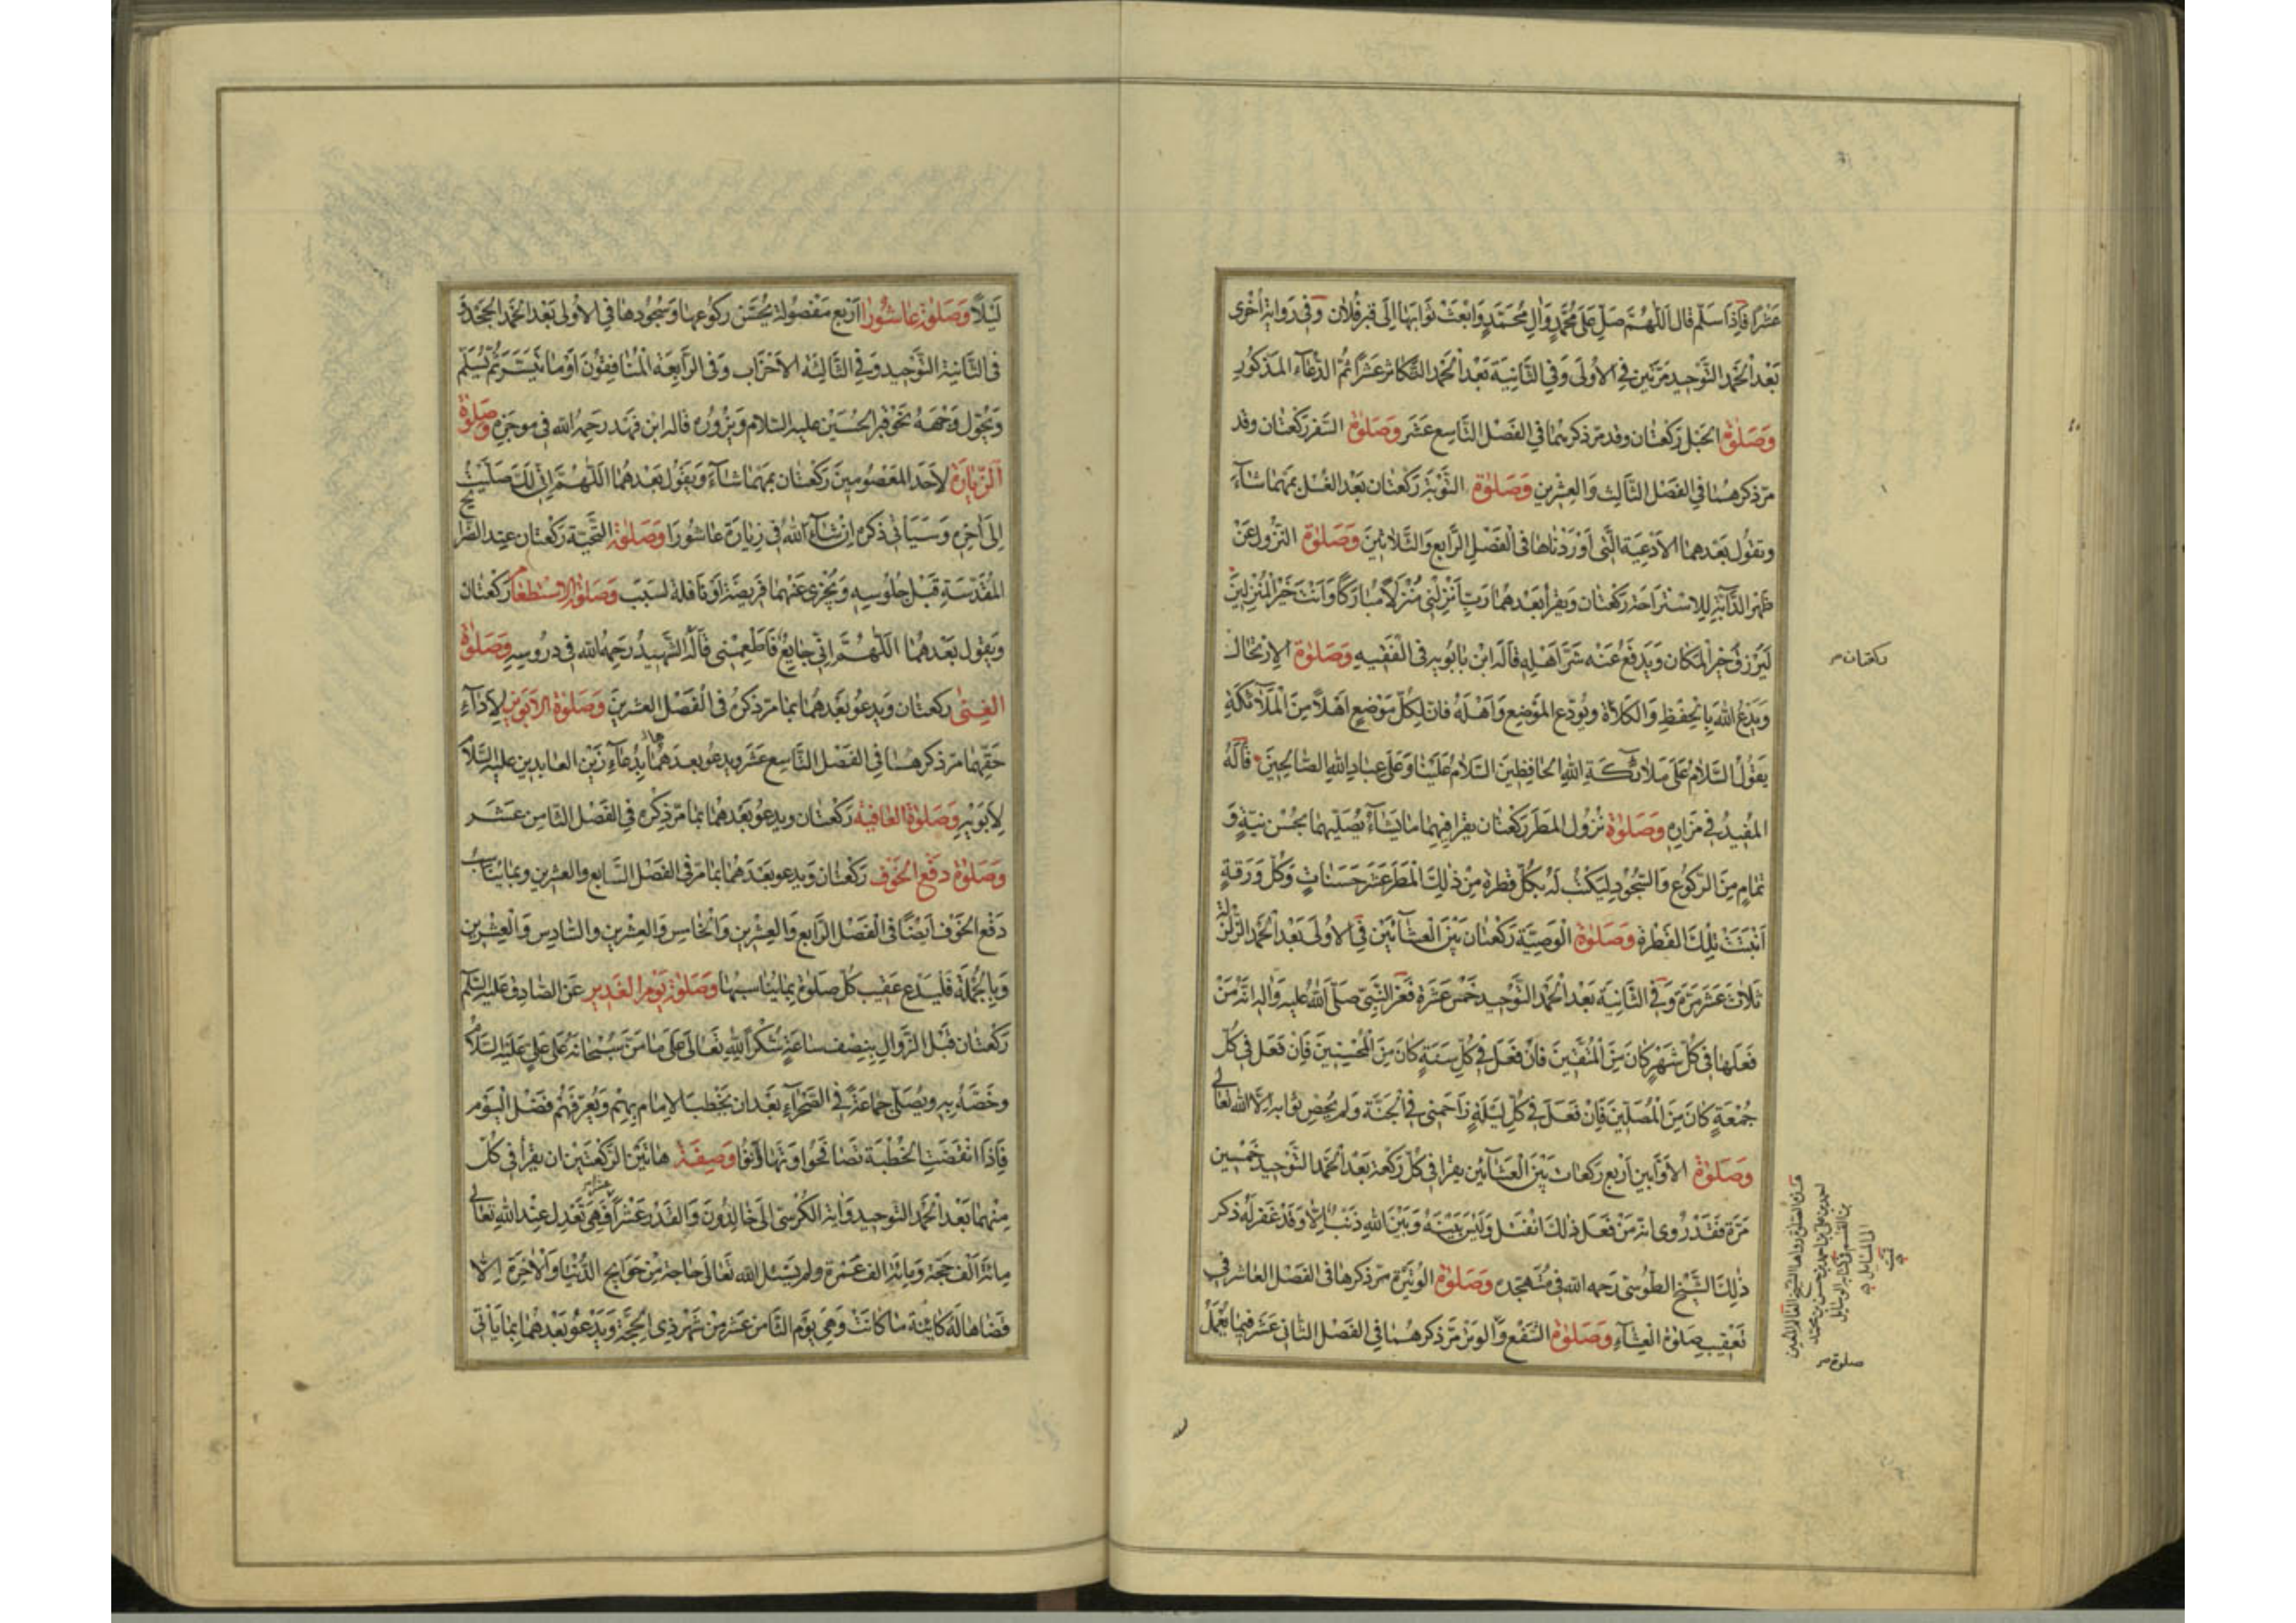 عَشْرًا فَاِذَا سَلَّمَ قالَ اَللّٰهُمَّ صَلِّ عَلىٰ مُحَمَّدٍ وَاٰلِ مُحَمَّدٍ وَابْعَثْ ثَوَابَهَا اِلىٰ قَبْرِ فُلَانٍ وَفى رَوايَةٍ اُخْرى
بَعْدَ الْحَمْدِ التَّوْحيدَ مَرَّتَيْنِ فِى الْاُولىٰ وَفِى الثَّانِيَةِ بَعْدَ الْحَمْدِ التَّكاثُرَ عَشْرًا ثُمَّ الدُّعَاءَ المَذكُورَ
وَصَلوٰةُ الحَبَلِ رَكْعَتانِ وقد مَرّ ذكرهُما فِى الفَصْلِ التَّاسِعِ عَشَرَ وَصَلوٰةُ السَّفَرِ رَكْعَتان وقد
مَرّ ذكرهُما فِى الفَصْلِ الثَّالِثِ وَالعِشْرينَ وَصَلوٰةُ التَّوْبَةِ رَكْعَتان بَعْدَ الغُسْلِ بِمَهْمَا شَاءَ
وتقُولُ بَعْدَهما الاَدْعِيَةَ الَّتى اَوْرَدْناها فِى الْفَصْلِ الرَّابِعِ وَالثَّلاثينَ وَصَلوٰةُ النُّزُولِ عَنْ
ظَهْرِ الدَّابَّةِ لِلاسْتِراحَةِ رَكْعَتان وَيَقْرَأُ بَعْدَهُما رَبِّ اَنْزِلْنى مُنْزَلًا مُبارَكًا وَاَنْتَ خَيْرُ الْمُنْزِلينَ
لِيُرْزَقَ خَيْرَ الْمَكانِ وَيُدْفَعَ عَنْهُ شَرُّ اَهْلِهِ قَالَهُ ابْنُ بَابُويه فِى الْفَقيهِ وَصَلوٰةُ الاِرْتِحَالِ
وَيَدْعُ اللهَ بِالْحِفْظِ وَالكَلاءَةِ ويُوَدِّعُ المَوْضِعَ وَاَهْلَهُ فَانَّ لِكُلِّ مَوْضِعٍ اَهْلًا مِنَ الْمَلائكَةِ
يَقُولُ السَّلامُ عَلىٰ مَلائكَةِ اللهِ الحَافِظينَ السَّلامُ عَلَيْنا وَعَلىٰ عِبادِ اللهِ الصَّالِحينَ قَالَهُ
المُفيدُ فى مَزارِهِ وَصَلوٰةُ نُزُولِ المَطَرِ رَكْعَتان يَقْرأ فيهِما ما يَشَاءُ يُصَلّيهِما بِحُسْنِ نِيَّةٍ وَ
تَمَامٍ مِنَ الرُّكُوعِ وَالسُّجُودِ لِيُكْتَبَ لَهُ بِكُلِّ قَطْرَةٍ مِنْ ذٰلِكَ الْمَطَرِ عَشْرُ حَسَنَاتٍ وَكُلِّ وَرَقَةٍ
اَنْبَتَتْ تِلْكَ القَطْرَةُ وَصَلوٰةُ الْوَصِيَّةِ رَكْعَتان بَيْنَ الْعِشَائَيْنِ فِى الاُولىٰ بَعْدَ الْحَمْدِ الزَّلْزَلَةَ
ثَلاثَ عَشْرَ مَرَّةً وَفِى الثَّانِيَةِ بَعْدَ الْحَمْدِ التَّوْحِيدَ خَمْسَ عَشْرَةَ فَعَنِ النَّبِىِّ صَلَّى اللهُ عَلَيْهِ وَاٰلِهِ انَّهُ مَنْ
فَعَلَها فى كُلِّ شَهْرٍ كَانَ مِنَ الْمُتَّقينَ فَانْ فَعَلَ فى كُلِّ سَنَةٍ كَانَ مِنَ الْمُحْسِنينَ فَاِنْ فَعَلَ فى كُلِّ
جُمْعَةٍ كَانَ مِنَ الْمُصَلّينَ فَاِنْ فَعَلَ فى كُلِّ لَيْلَةٍ زَاحَمَنى فِى الْجَنَّةِ وَلَمْ يُحْصِ ثَوابَهُ اِلَّا اللهُ تَعَالىٰ
وَصَلوٰةُ الاَوَّابينَ اَرْبَعُ رَكَعاتٍ بَيْنَ الْعِشَائَيْنِ يقرأ فى كُلِّ رَكْعَةٍ بَعْدَ الْحَمْدِ التَّوْحيدَ خَمْسينَ
مَرَّةً فَقَدْ رُوِىَ انَّهُ مَنْ فَعَلَ ذٰلِكَ انْفَتَلَ وَلَيْسَ بَيْنَهُ وَبَيْنَ اللهِ ذَنْبٌ اِلَّا وَقَدْ غَفَرَ لَهُ ذكر
ذٰلِكَ الشَّيْخُ الطُّوسِىُّ رَحِمَهُ الله فى مُتَهَجِّدِهِ وَصَلوٰةُ الوُتَيْرَةِ مَرّ ذكرها فِى الفَصْلِ العَاشِرِ فى
تَعْقيبِ صَلوٰةِ الْعِشَاءِ وَصَلوٰةُ الشَّفْعِ وَالوَتْرِ مَرَّ ذكرهُما فِى الفَصْلِ الثَّانى عَشَرَ فيما يُعْمَلُ
ركعتان صح
صلوة صح
لَيْلًا وَصَلوٰةُ عَاشُورا اَرْبَعٌ مَفْصُولَةٌ يُحَسِّنُ رُكُوعَها وَسُجُودَها فِى الاُولىٰ بَعْدَ الْحَمْدِ الجَحْدُ وَ
فِى الثَّانِيَةِ التَّوْحيدُ وَفِى الثَّالِثَةِ الاَحْزَابُ وَفِى الرَّابِعَةِ الْمُنَافِقُونَ اَوْ مَا تَيَسَّرَ ثُمَّ يُسَلِّمُ
وَيُحَوِّلُ وَجْهَهُ نَحْوَ قَبْرِ الحُسَيْنِ عليه السّلام وَيَزُورُهُ قالَهُ ابْنُ فَهْدٍ رَحِمَهُ الله فى موجَزِهِ وَصَلوٰةُ
اَلزِّيَارَةِ لِاَحَدِ المَعْصُومينَ رَكْعَتان بِمَهْمَا شَاءَ وَيَقُولُ بَعْدَهُمَا اللّٰهُمَّ اِنّى لَكَ صَلَّيْتُ
اِلىٰ اٰخِرِهِ وَسَيَأتى ذكره اِنْ شَاءَ اللهُ فى زِيَارَةِ عَاشُورَا وَصَلوٰةُ التَّحِيَّةِ رَكْعَتانِ عِنْدَ الضَّرائح
المُقَدَّسَةِ قَبْلَ جُلُوسِهِ وَيُجْزى عَنْهُما فَريضَةٌ اَوْ نَافِلَةٌ لِسَبَبٍ وَصَلوٰةُ الاِسْتِطْعَامِ رَكْعَتان
وَيَقُولُ بَعْدَهُما اللّٰهُمَّ اِنّى جَايِعٌ فَاَطْعِمْنى قَالَهُ الشَّهيدُ رَحِمَهُ الله فى دروسِهِ وَصَلوٰةُ
الغِنىٰ ركعتان وَيَدعُو بَعْدَهُما بِما مَرّ ذكرُهُ فِى الْفَصْلِ العِشرينَ وَصَلوٰةُ الاَبَوَيْنِ لِاَدَاءِ
حَقِّهِما مَرّ ذكرهُما فِى الفَصْلِ التَّاسِعِ عَشَرَ ويدعو بعدَهُما بِدُعَاءِ زَيْنِ العَابِدينَ عليه السَّلام
لِاَبَوَيْهِ وَصَلوٰةُ العَافِيَةِ رَكْعَتان ويدعوُ بَعْدَهُما بِما مَرّ ذِكْرُهُ فِى الفَصْلِ الثَّامِنِ عَشَرَ
وَصَلوٰةُ دَفْعِ الخَوْفِ رَكْعَتان وَيَدعو بَعْدَهُما بِما مَرّ فِى الفَصْلِ السَّابِعِ والعشرين وبما يُنَاسِبُ
دَفْعَ الخَوْفِ اَيضًا فِى الْفَصْلِ الرَّابِعِ وَالعِشْرينَ وَالْخَامِسِ وَالعِشْرينَ والسَّادِسِ وَالْعِشْرينَ
وَبِالجُمْلَةِ فَلْيَدْعُ عَقيبَ كُلِّ صَلوٰةٍ بِما يُنَاسِبُها وَصَلوٰةُ يَوْمِ الغَديرِ عَنِ الصَّادِقِ عَلَيْهِ السَّلام
رَكْعَتان قَبْلَ الزَّوَالِ بِنِصْفِ سَاعَةٍ شُكْرًا لِلّٰهِ تَعَالىٰ عَلىٰ مَا مَنَّ سُبْحَانَهُ عَلىٰ عَلِىٍّ عَلَيْهِ السَّلام
وخَصَّهُ بِهِ ويُصَلّى جَماعَةً فِى الصَّحْرَاءِ بَعْدَ ان يَخْطُبَ الامام بِهِمْ وَيُعَرِّفَهُمْ فَضْلَ الْيَوْمِ
فَاِذَا انْقَضَتِ الخُطْبَةُ تَصَافَحُوا وَتَهَانَؤُا وَصِفَةُ هَاتَيْنِ الرَّكْعَتَيْنِ ان يَقْرأ فى كُلٍّ
مِنْهُما بَعْدَ الْحَمْدِ التوحيد وَايَةَ الكُرْسِىِّ اِلىٰ خَالِدُونَ وَالقَدْرَ عَشْرًا فَهِىَ تَعْدِلُ عِنْدَ اللهِ تَعَالىٰ
مِائَةَ اَلْفِ حَجَّةٍ وَمِائَةَ الف عُمْرَةٍ ولم يَسْئَلِ الله تَعَالىٰ حَاجَةً مِنْ حَوَائِجِ الدُّنْيا وَالْاٰخِرَةِ اِلَّا
قَضَاهَا لَهُ كَائِنَةً مَا كَانَتْ وَهِىَ يَوْمُ الثَّامِنِ عَشَرَ مِنْ شَهْرِ ذِى الحِجَّةِ وَيَدْعُو بَعْدَهُما بِما يَأتى